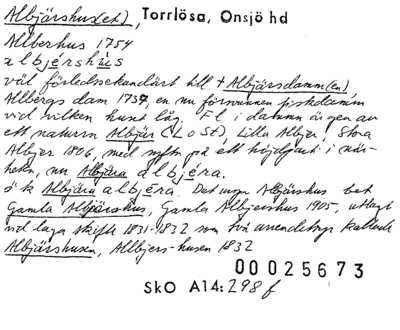 Albjärshus(et), Torrlösa, Onsjö hd
Allberhus 1754
albjérshùs
väl förledssekundärt till + Albjärsdamm(en)
Allbergs dam 1734, en nu försvunnen fiskdamm
vid vilken huset låg. Fl i datumn är gen av
ett naturn Albjär (LoSt), Lilla Albjer, Stora
Albjer 1806, med syftn på ett höjdparti i när-
heten, nu Albjära albjéra.
s k Albjära albjéra. Det unga Albjärshus bet
Gamla Albjärshus, Gamla Albjershus 1905, utlagt
vid laga skifte 1831-1832 som två arrendetorp kallade
Albjärshusen, Allbjers-husen 1832
00025673
SkO A14:298 f